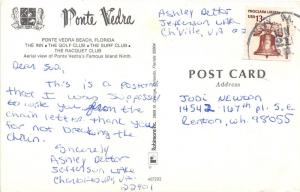 Ponte Vedra
PONTE VEDRA BEACH, FLORIDA
THE INN • THE GOLF CLUB • THE SURF CLUB •
THE RACQUET CLUB
Aerial view of Ponte Vedra's Famous Island Ninth.
Ashley Dettor
Jefferson
Ch'ville, VA
13
POST CARD
Address
Dear
This is a postcard
that I was supposed
to write you from the
chain letter. Thank you
for not breaking the
chain.
Sincerely
Ashley Dettor
Jefferson
Charlottesville, VA
22901
Jodi Newton
14542 167th pl. S.E.
Renton, Wh. 98055